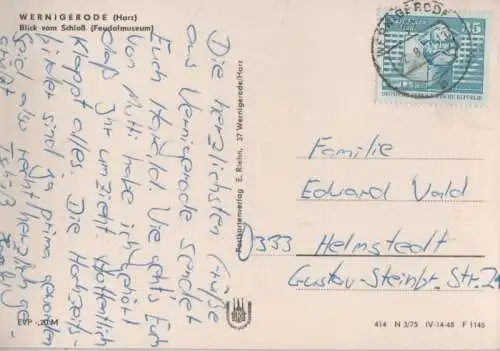 WERNIGERODE (Harz)
Blick vom Schloß (Feudalmuseum)
Die herzlichsten Grüße
aus Wernigerode sendet
Euch Harald. Wie geht's Euch
Von Mutti habe ich gehört
daß Ihr umzieht. Hoffentlich
klappt alles. Die Hochzeits-
bilder sind ja prima geworden
Seid also recht herzlich ge-
Postkartenverlag E. Riehn, 37 Wernigerode/Harz
EVP -,20 M
WERNIGERODE
DEUTSCHE DEMOKRATISCHE REPUBLIK
Familie
Eduard Wald
3333 Helmstedt
Gustav-Steinbr. Str. 24
414 N 3/75 IV-14-48 F 1146